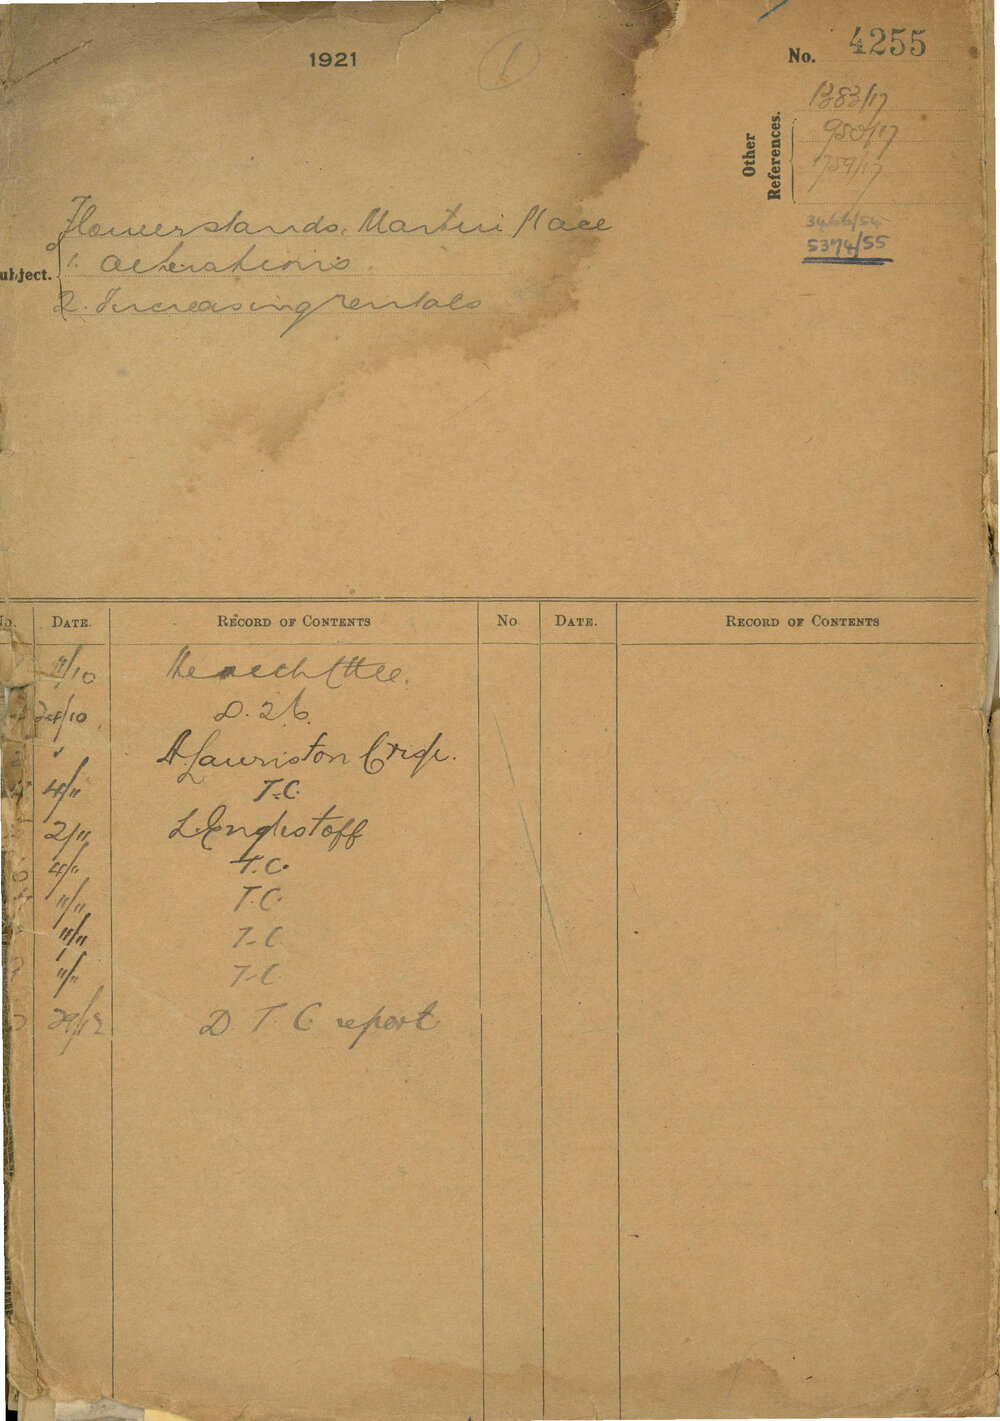 1921
No. 4255
Other References.
1383/17
950/17
1759/17
3466/54
5374/55
ubject.
Flowerstands, Martin Place
1. Alterations
2. Increasing rentals
No. DATE. RECORD OF CONTENTS No DATE. RECORD OF CONTENTS
11/10
24/10 D. 26.
A Lauriston Crisp.
4/" T.C.
2/11
4/" T.C.
"/" T.C.
"/" T.C.
"/" T.C.
29/12 D. T. C. report